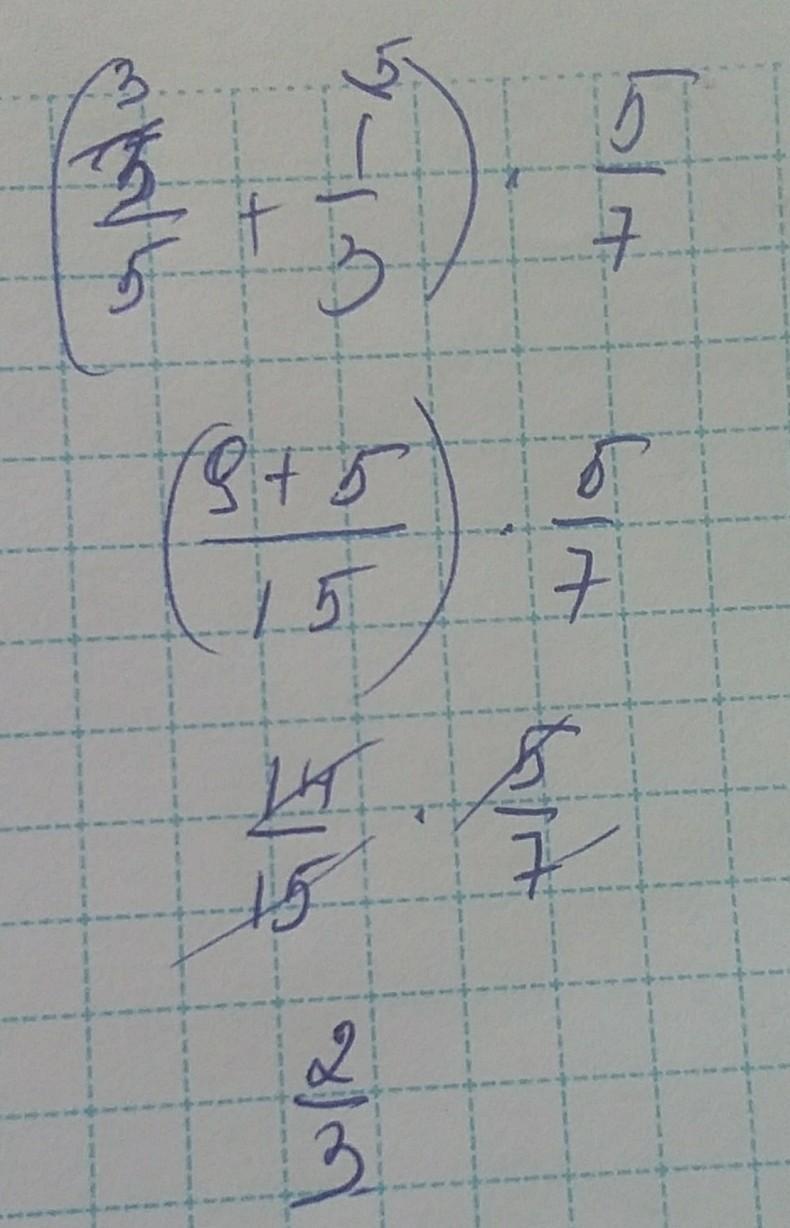 (3/5 ³ + 1/3 ⁵) · 5/7
((9 + 5)/15) · 5/7
14/15 · 5/7
2/3